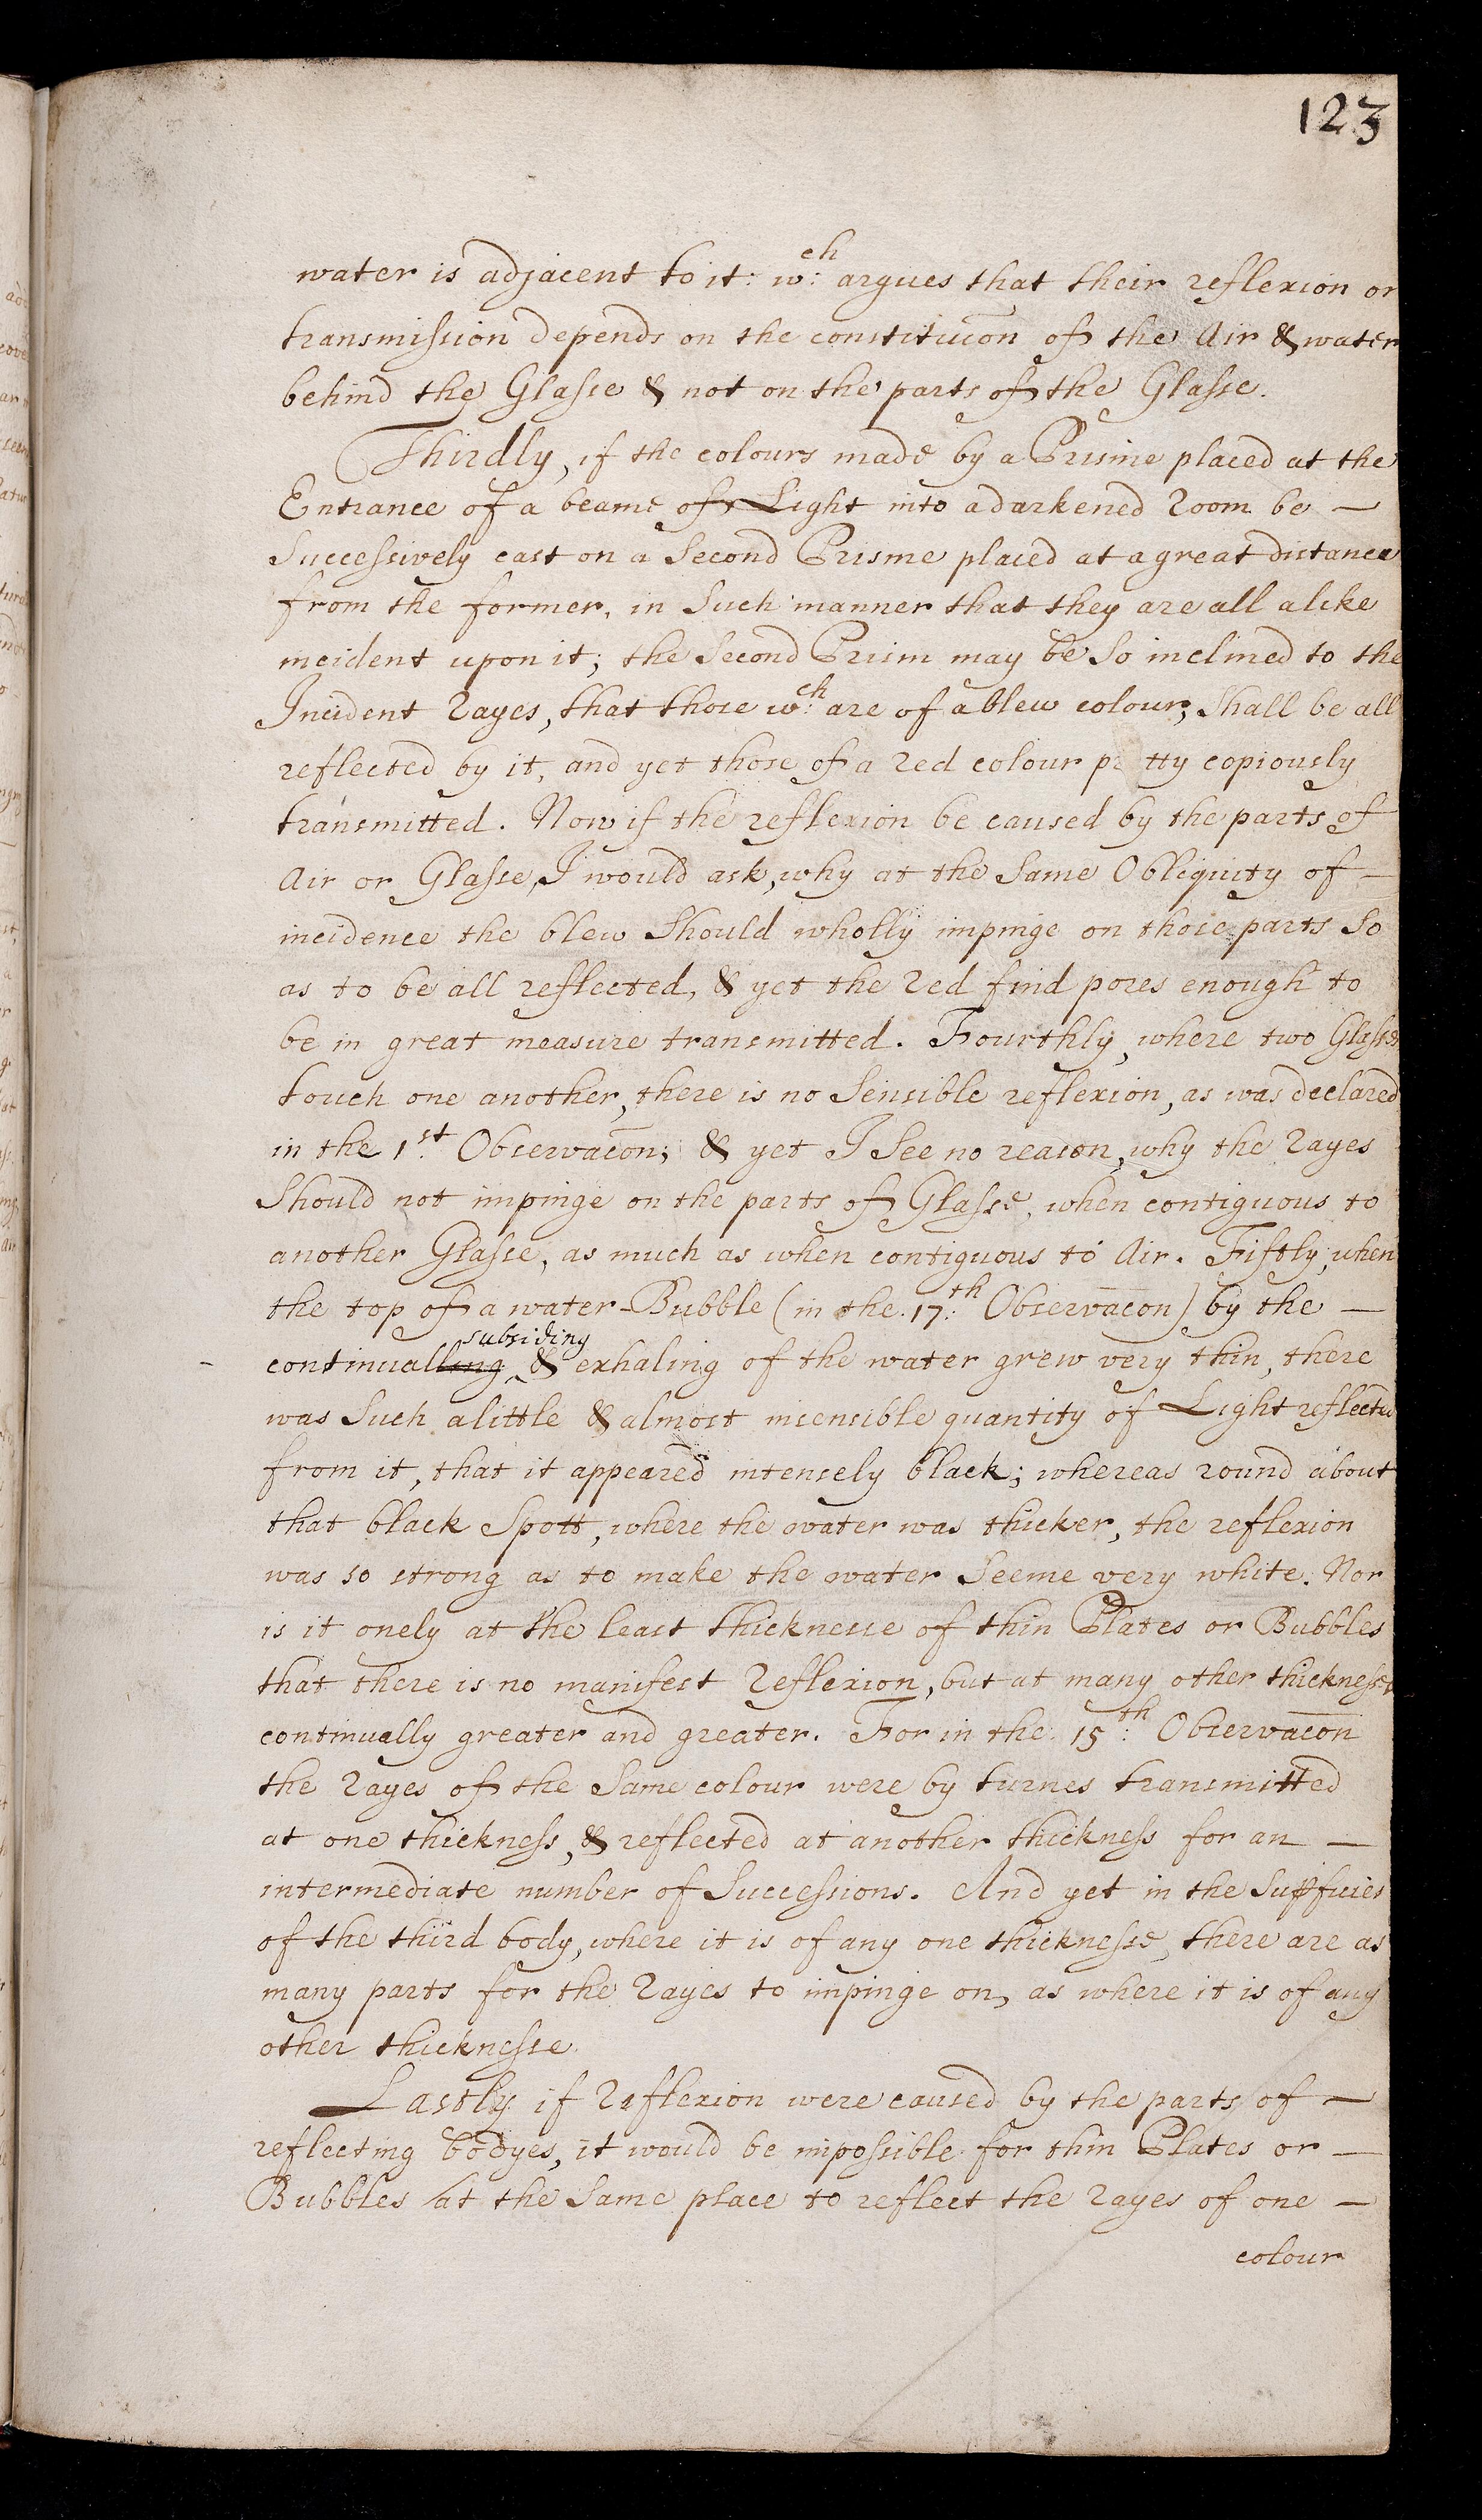 123
water is adjacent to it: wch: argues that their reflexion or
transmission depends on the constitucon of the Air & water
behind the Glasse & not on the parts of the Glasse.
Thirdly, if the colours made by a Prisme placed at the
Entrance of a beame of Light into a darkened Room be —
Successively cast on a Second Prisme placed at a great distance
from the former, in Such manner that they are all alike
incident upon it; the Second Prism may be So inclined to the
Incident Rayes, that those wch: are of a blew colour, Shall be all
reflected by it, and yet those of a red colour pretty copiously
transmitted. Now if the reflexion be caused by the parts of
Air or Glasse, I would ask, why at the Same Obliquity of —
incidence the blew Should wholly impinge on those parts So
as to be all reflected, & yet the red find pores enough to
be in great measure transmitted. Fourthly, where two Glasses
touch one another, there is no Sensible reflexion, as was declared
in the 1st. Observacon; & yet I See no reason, why the Rayes
Should not impinge on the parts of Glasse, when contiguous to
another Glasse, as much as when contiguous to Air. Fiftly, when
the top of a water-Bubble (in the 17th: Observacon) by the —
subsiding
continualling & exhaling of the water grew very thin, there
was Such a little & almost insensible quantity of Light reflected
from it, that it appeared intensely black; whereas round about
that black Spott, where the water was thicker, the reflexion
was so strong as to make the water Seeme very white. Nor
is it onely at the least thicknesse of thin Plates or Bubbles
that there is no manifest Reflexion, but at many other thicknesses
continually greater and greater. For in the 15th: Observacon
the Rayes of the Same colour were by turnes transmitted
at one thickness, & reflected at another thickness for an —
intermediate number of Successions. And yet in the Supficies
of the third body, where it is of any one thicknesse, there are as
many parts for the Rayes to impinge on, as where it is of any
other thicknesse.
Lastly if Reflexion were caused by the parts of —
reflecting bodyes, it would be impossible for thin Plates or —
Bubbles at the Same place to reflect the rayes of one —
colour